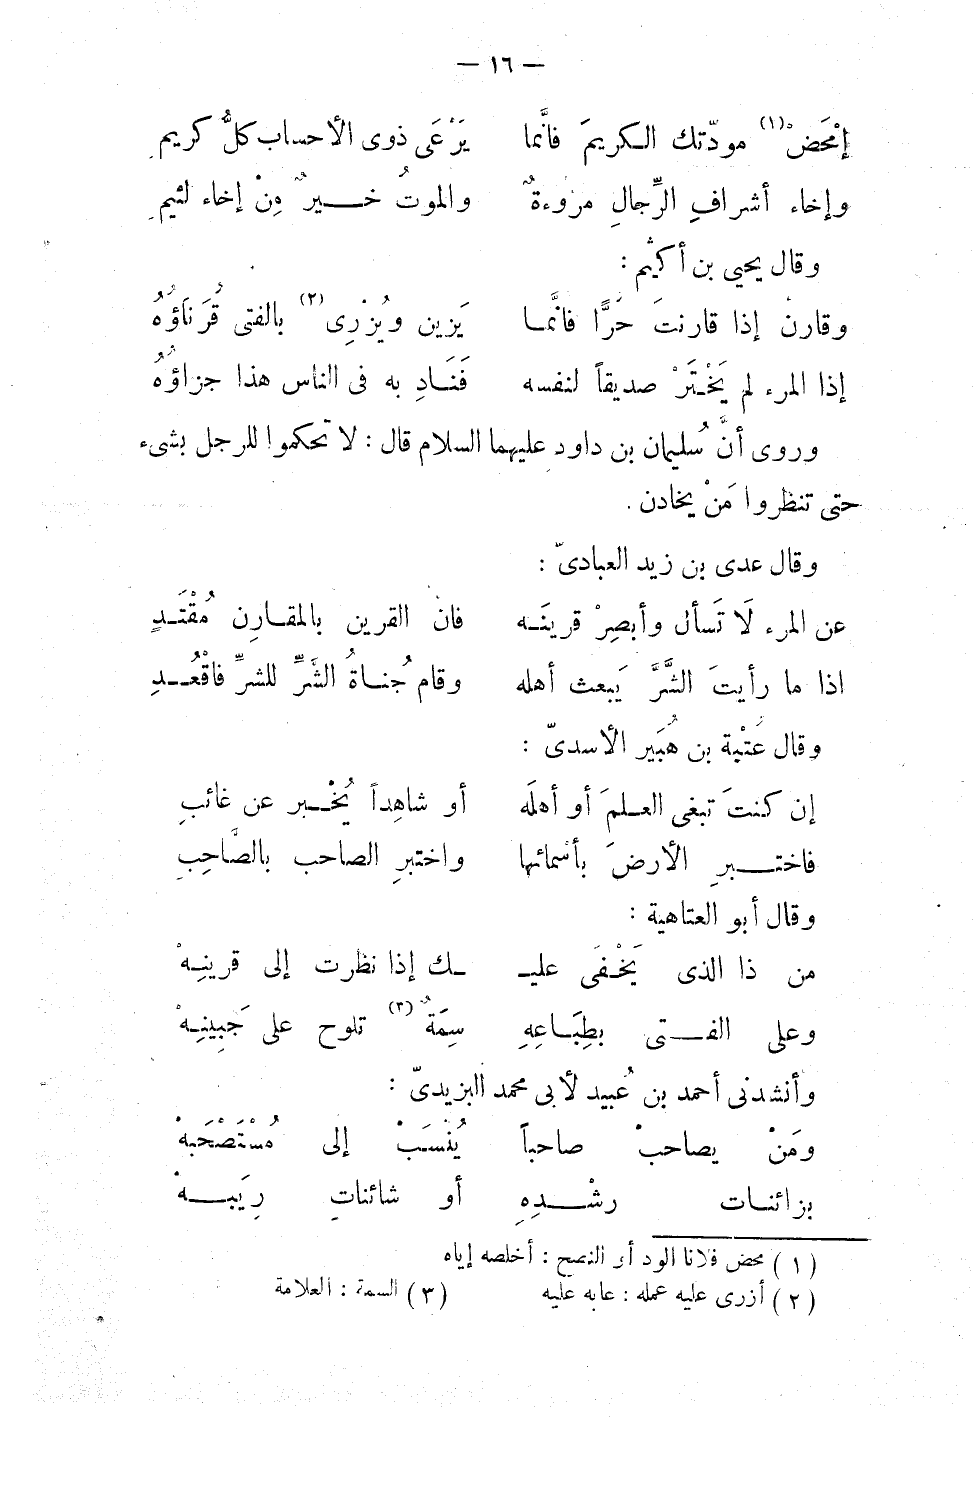 — ١٦ —
إمْحَضْ (١) مودّتك الكريمَ فانَّما يَرْعَى ذوى الأحساب كلُّ كريم
وإخاء أشرافِ الرِّجالِ مروءةٌ والموتُ خيرٌ مِنْ إخاء لئيم
وقال يحيى بن أكثم :
وقارنْ إذا قارنتَ حُرًّا فانَّما يَزين ويُزْرِى (٢) بالفتى قُرَناؤُهُ
إذا المرء لم يَخْتَرْ صديقاً لنفسه فَنَادِ به فى الناس هذا جزاؤُهُ
وروى أنَّ سُليمان بن داود عليهما السلام قال : لا تحكموا للرجل بشىء
حتى تنظروا مَنْ يخادن .
وقال عدى بن زيد العبادىّ :
عن المرء لَا تَسأل وأبصِرْ قرينَه فان القرين بالمقارِن مُقْتَدِ
اذا ما رأيتَ الشَّرَّ يَبعث أهله وقام جُناةُ الشَّرِّ للشرِّ فاقْعُدِ
وقال عُتْبة بن هُبَير الأسدىّ :
إن كنتَ تبغى العلمَ أو أهلَه أو شاهِداً يُخْبر عن غائبِ
فاختبرِ الأرضَ بأسْمائها واختبرِ الصاحب بالصَّاحِبِ
وقال أبو العتاهية :
من ذا الذى يَخْفَى عليـ ـك إذا نظرت إلى قرينِهْ
وعلى الفتى بطِبَاعِهِ سِمَةٌ (٣) تلوح على جَبِينِهْ
وأنشدنى أحمد بن عُبيد لأبى محمد اليزيدىّ :
ومَنْ يصاحبْ صاحباً يُنْسَبْ إلى مُسْتَصْحَبِهْ
بزائنات رشْدِهِ أو شائناتِ رِيَبِهْ
(١) محض فلانا الود أو النصح : أخلصه إياه
(٢) أزرى عليه عمله : عابه عليه (٣) السمة : العلامة